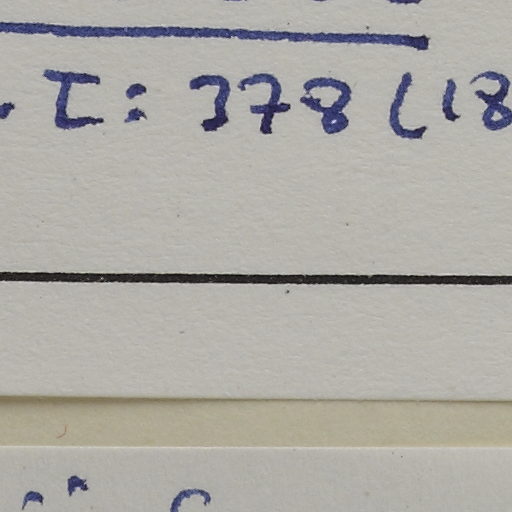 . I: 378 (18